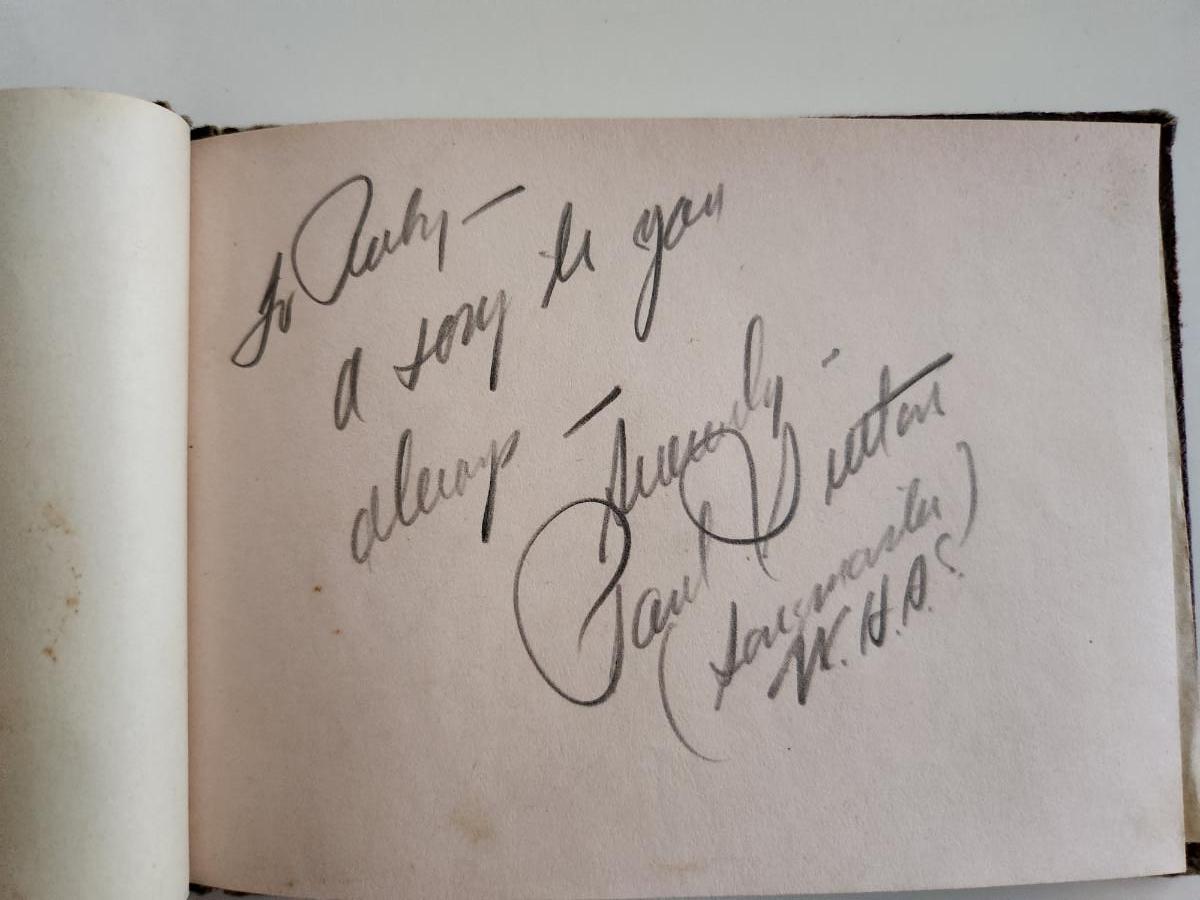 To Ruby —
a song to you
always —
Sincerely -
Paul Sutton
(songmaster)
W.H.A.S.